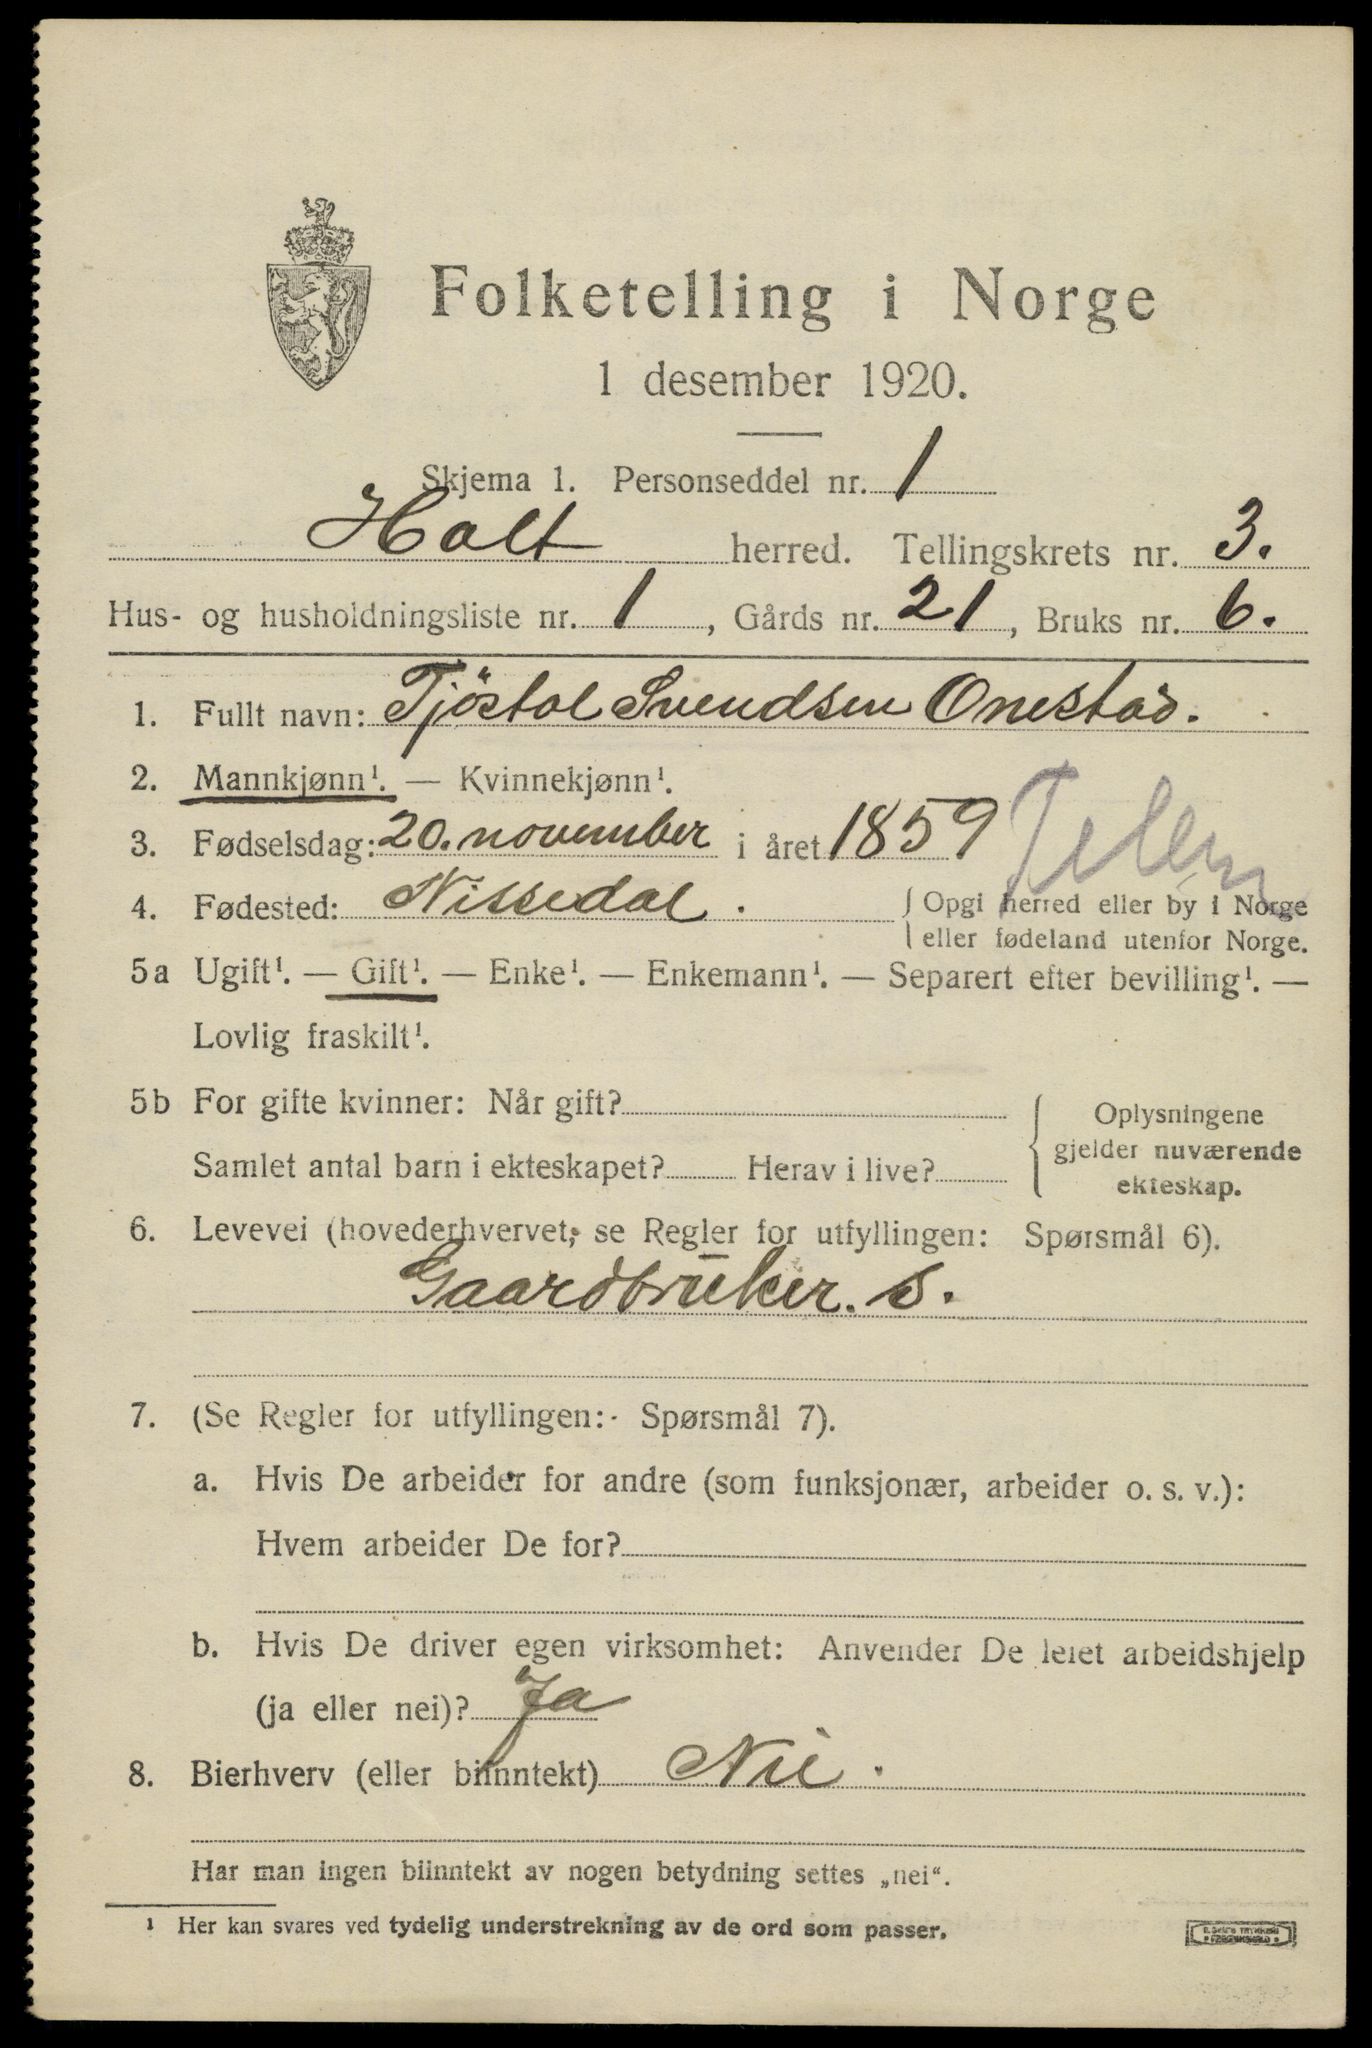 Folketelling i Norge
1 desember 1920.
Skjema 1. Personseddel nr. 1
Holt herred. Tellingskrets nr. 3.
Hus- og husholdningsliste nr. 1, Gårds nr. 21, Bruks nr. 6.
1. Fullt navn: Tjöstol Svendsen Onestad.
2. Mannkjønn¹. — Kvinnekjønn¹.
3. Fødselsdag: 20. november i året 1859 Telem
4. Fødested: Nissedal. { Opgi herred eller by i Norge
eller fødeland utenfor Norge.
5a Ugift¹. — Gift¹. — Enke¹. — Enkemann¹. — Separert efter bevilling¹. —
Lovlig fraskilt¹.
5b For gifte kvinner: Når gift? { Oplysningene
gjelder nuværende
Samlet antal barn i ekteskapet? Herav i live?
ekteskap.
6. Levevei (hovederhvervet; se Regler for utfyllingen: Spørsmål 6).
Gaardbruker. s.
7. (Se Regler for utfyllingen: Spørsmål 7).
a. Hvis De arbeider for andre (som funksjonær, arbeider o. s. v.):
Hvem arbeider De for?
b. Hvis De driver egen virksomhet: Anvender De leiet arbeidshjelp
(ja eller nei)? Ja
8. Bierhverv (eller biinntekt) Nei.
Har man ingen biinntekt av nogen betydning settes „nei“.
¹ Her kan svares ved tydelig understrekning av de ord som passer.